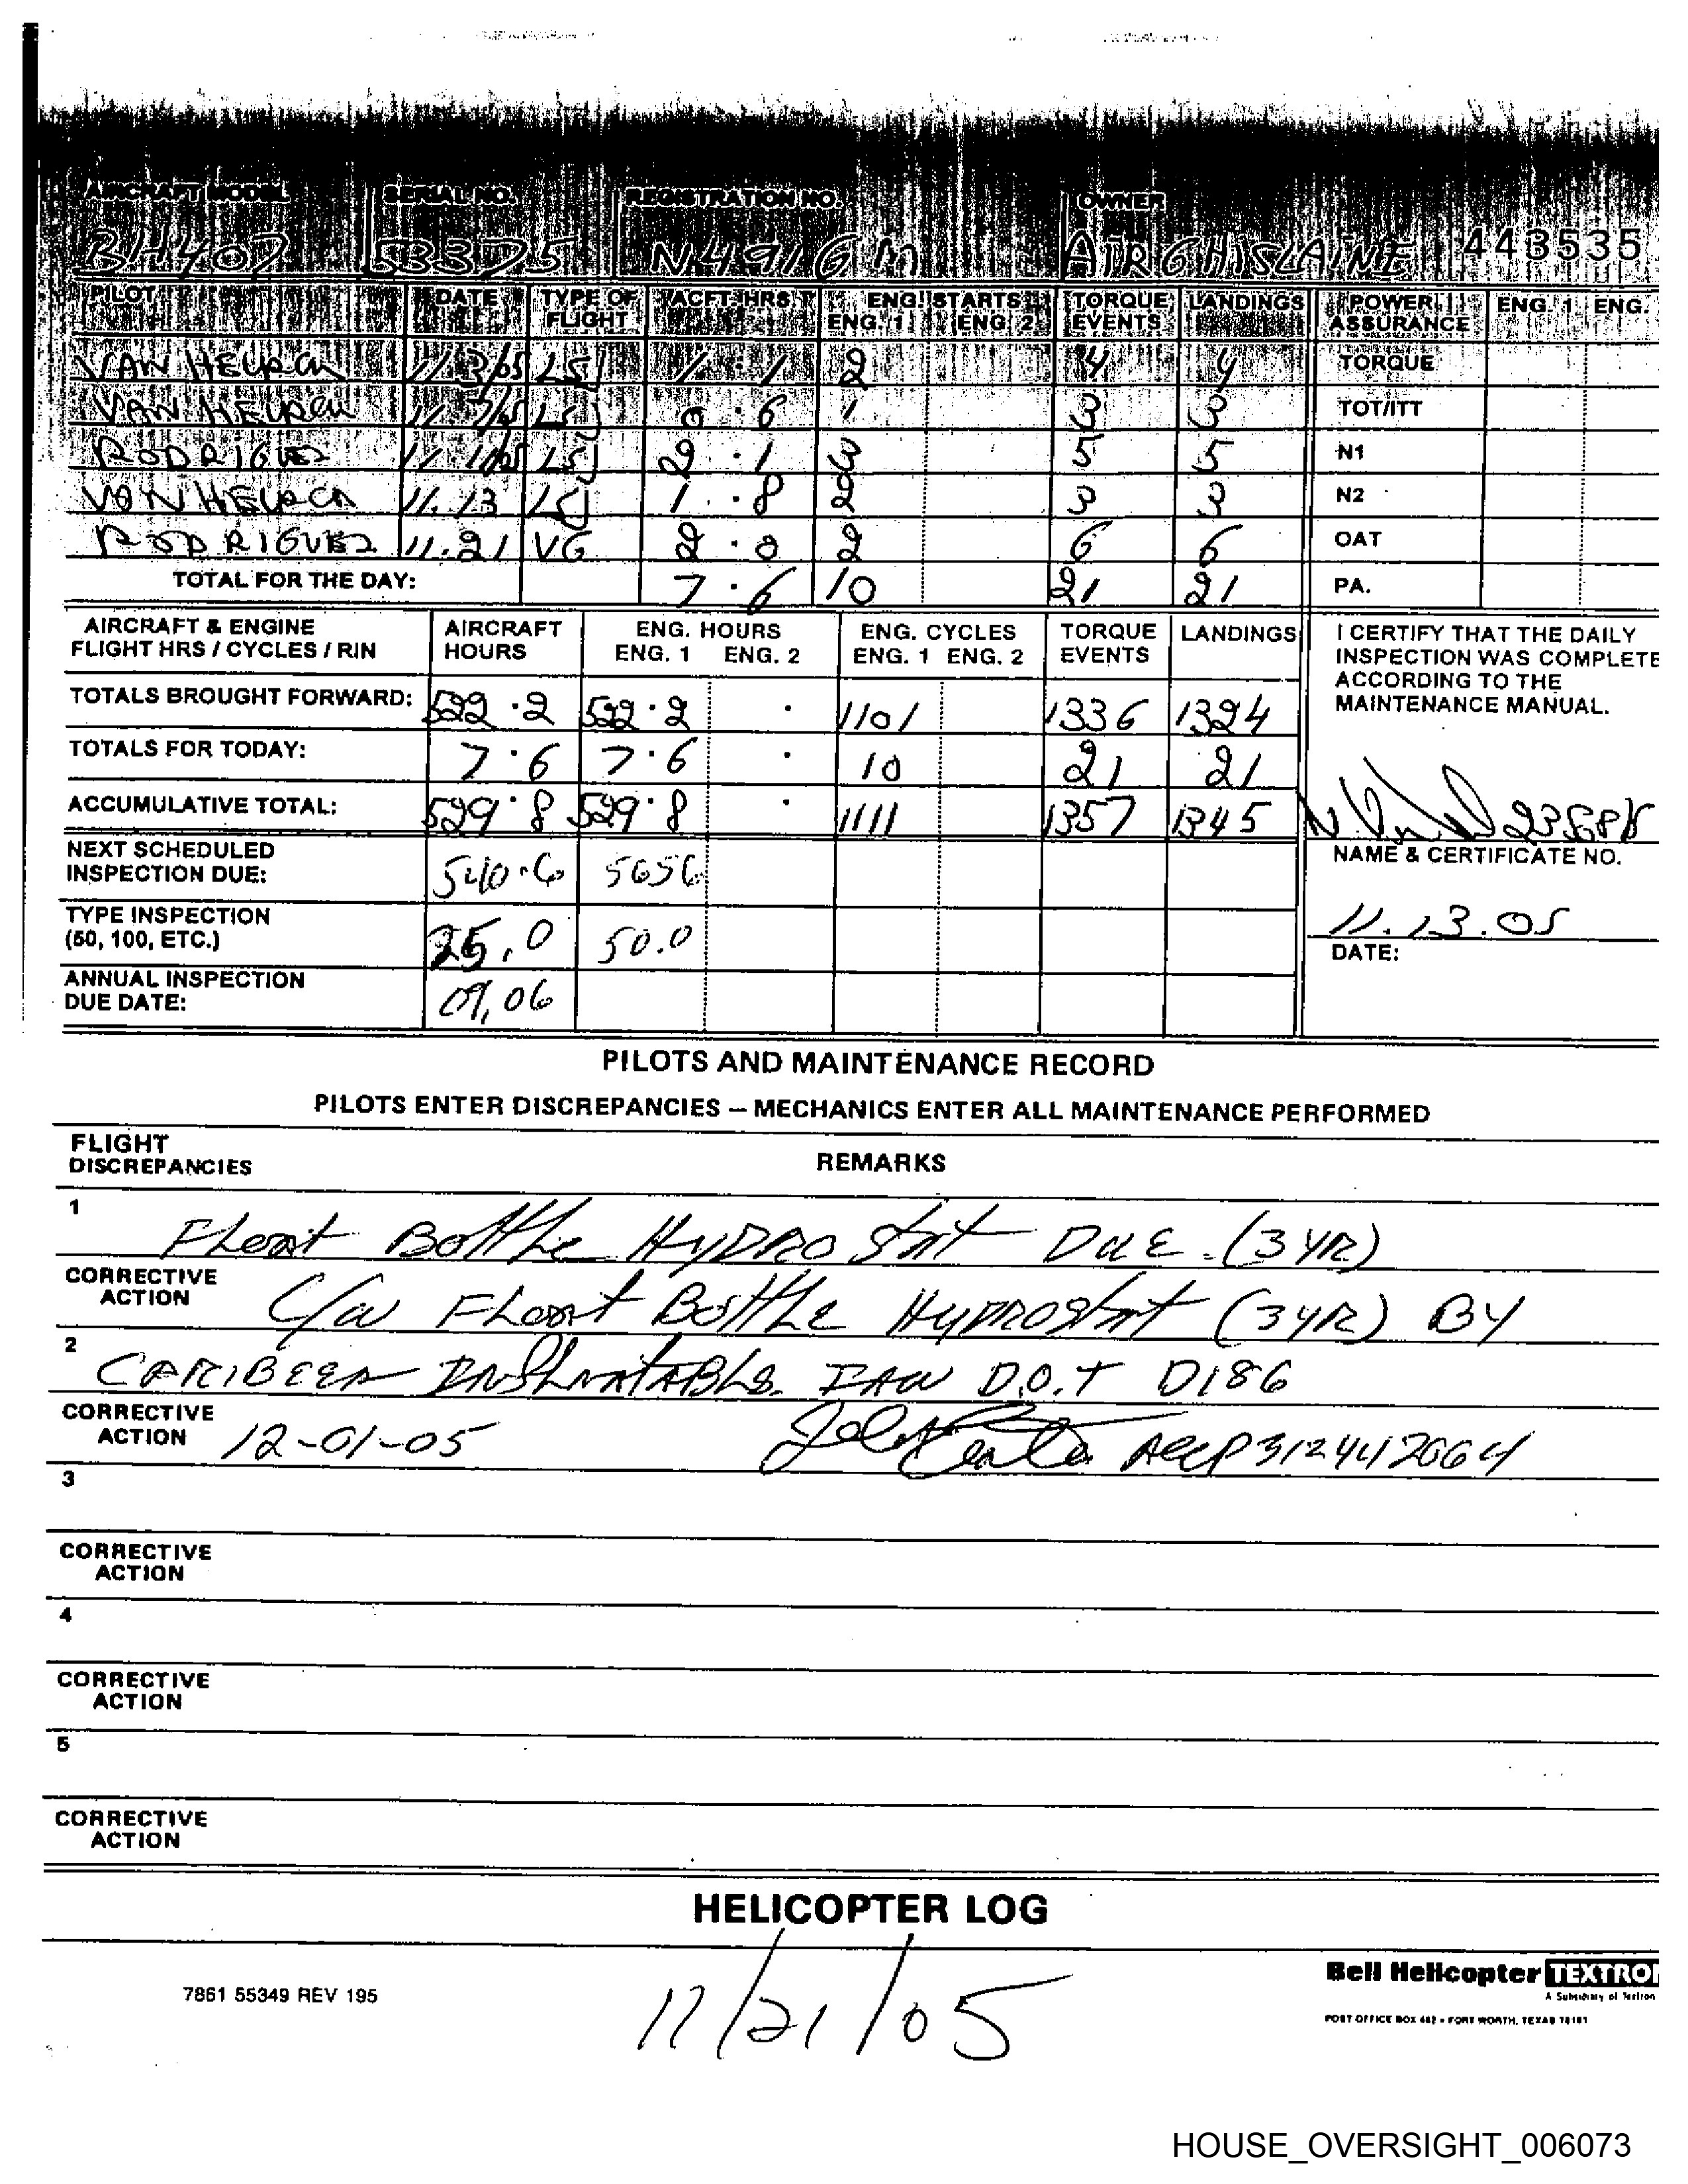 AIRCRAFT MODEL SERIAL NO. REGISTRATION NO. OWNER
BH407 53375 N491GM AIR GHISLAINE 443535
PILOT DATE TYPE OF FLIGHT ACFT HRS ENG. STARTS ENG. 1 ENG. 2 TORQUE EVENTS LANDINGS POWER ASSURANCE ENG. 1 ENG.
VAN 11/3/05 LSJ 1.1 2 4 4 TORQUE
VAN 11/7/05 LSJ 0.6 1 3 3 TOT/ITT
RODRIGUEZ LSJ 2.1 3 5 5 N1
VAN 11.13 LSJ 1.8 2 3 3 N2
RODRIGUEZ 11.21 VG 2.0 2 6 6 OAT
TOTAL FOR THE DAY: 7.6 10 21 21 PA.
AIRCRAFT & ENGINE FLIGHT HRS / CYCLES / RIN AIRCRAFT HOURS ENG. HOURS ENG. 1 ENG. 2 ENG. CYCLES ENG. 1 ENG. 2 TORQUE EVENTS LANDINGS
I CERTIFY THAT THE DAILY
INSPECTION WAS COMPLETE
ACCORDING TO THE
MAINTENANCE MANUAL.
TOTALS BROUGHT FORWARD: 522.2 522.2 . 1101 1336 1324
TOTALS FOR TODAY: 7.6 7.6 . 10 21 21
ACCUMULATIVE TOTAL: 529.8 529.8 . 1111 1357 1345
NAME & CERTIFICATE NO.
NEXT SCHEDULED INSPECTION DUE: 540.6 5656
TYPE INSPECTION (50, 100, ETC.) 25.0 50.0
11.13.05
DATE:
ANNUAL INSPECTION DUE DATE: 09,06
PILOTS AND MAINTENANCE RECORD
PILOTS ENTER DISCREPANCIES – MECHANICS ENTER ALL MAINTENANCE PERFORMED
FLIGHT DISCREPANCIES REMARKS
1 Float Bottle HYDRO Stat DUE. (3 YR)
CORRECTIVE ACTION C/W Float Bottle HYDROStat (3 YR) BY
2 CARIBEEN IAW D.O.T D186
CORRECTIVE ACTION 12-01-05 A&P 312442064
3
CORRECTIVE ACTION
4
CORRECTIVE ACTION
5
CORRECTIVE ACTION
HELICOPTER LOG
7861 55349 REV 195
11/21/05
Bell Helicopter TEXTRO
A Subsidiary of Textron
POST OFFICE BOX 482 • FORT WORTH, TEXAS 76101
HOUSE_OVERSIGHT_006073